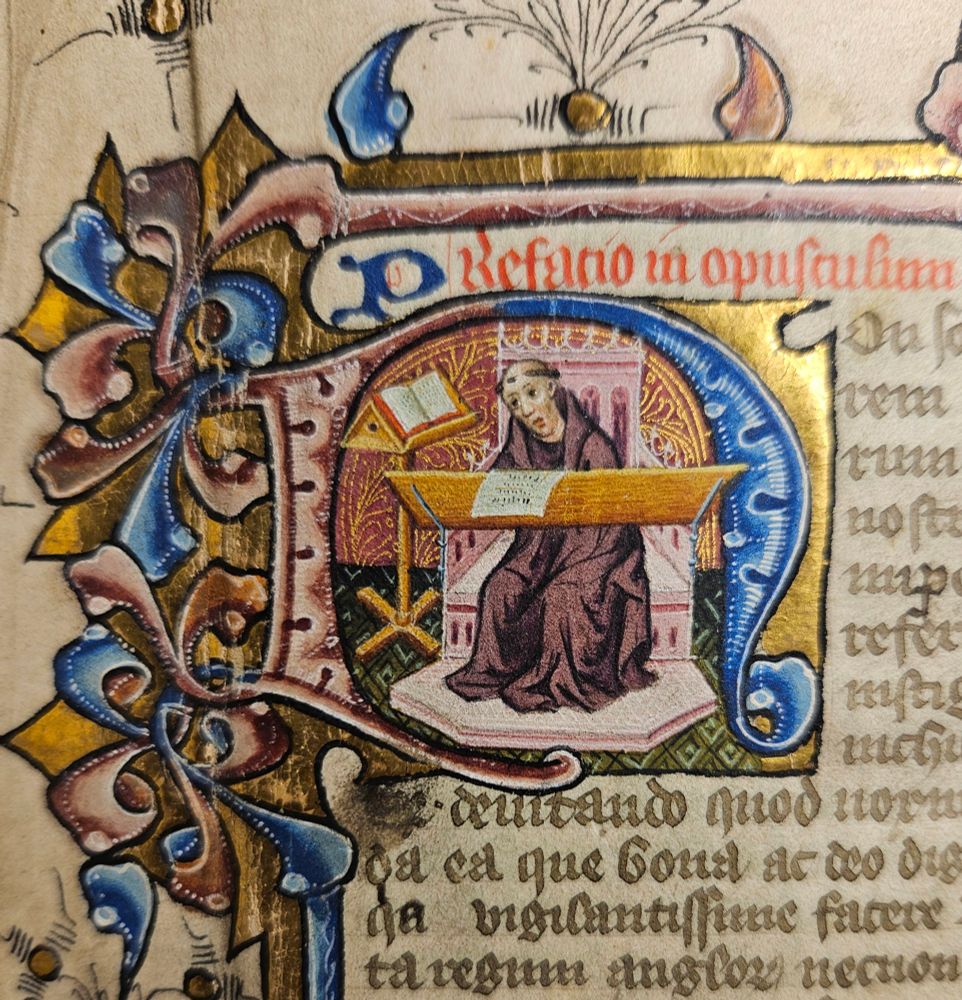 PRefatio in opusculum
NOn so
rem
rum
nosta
impe
refer
instig
nichi
deuitando quod norm
da ea que bona ac deo dig
qa vigilantissime facere
ta regum anglor necnon